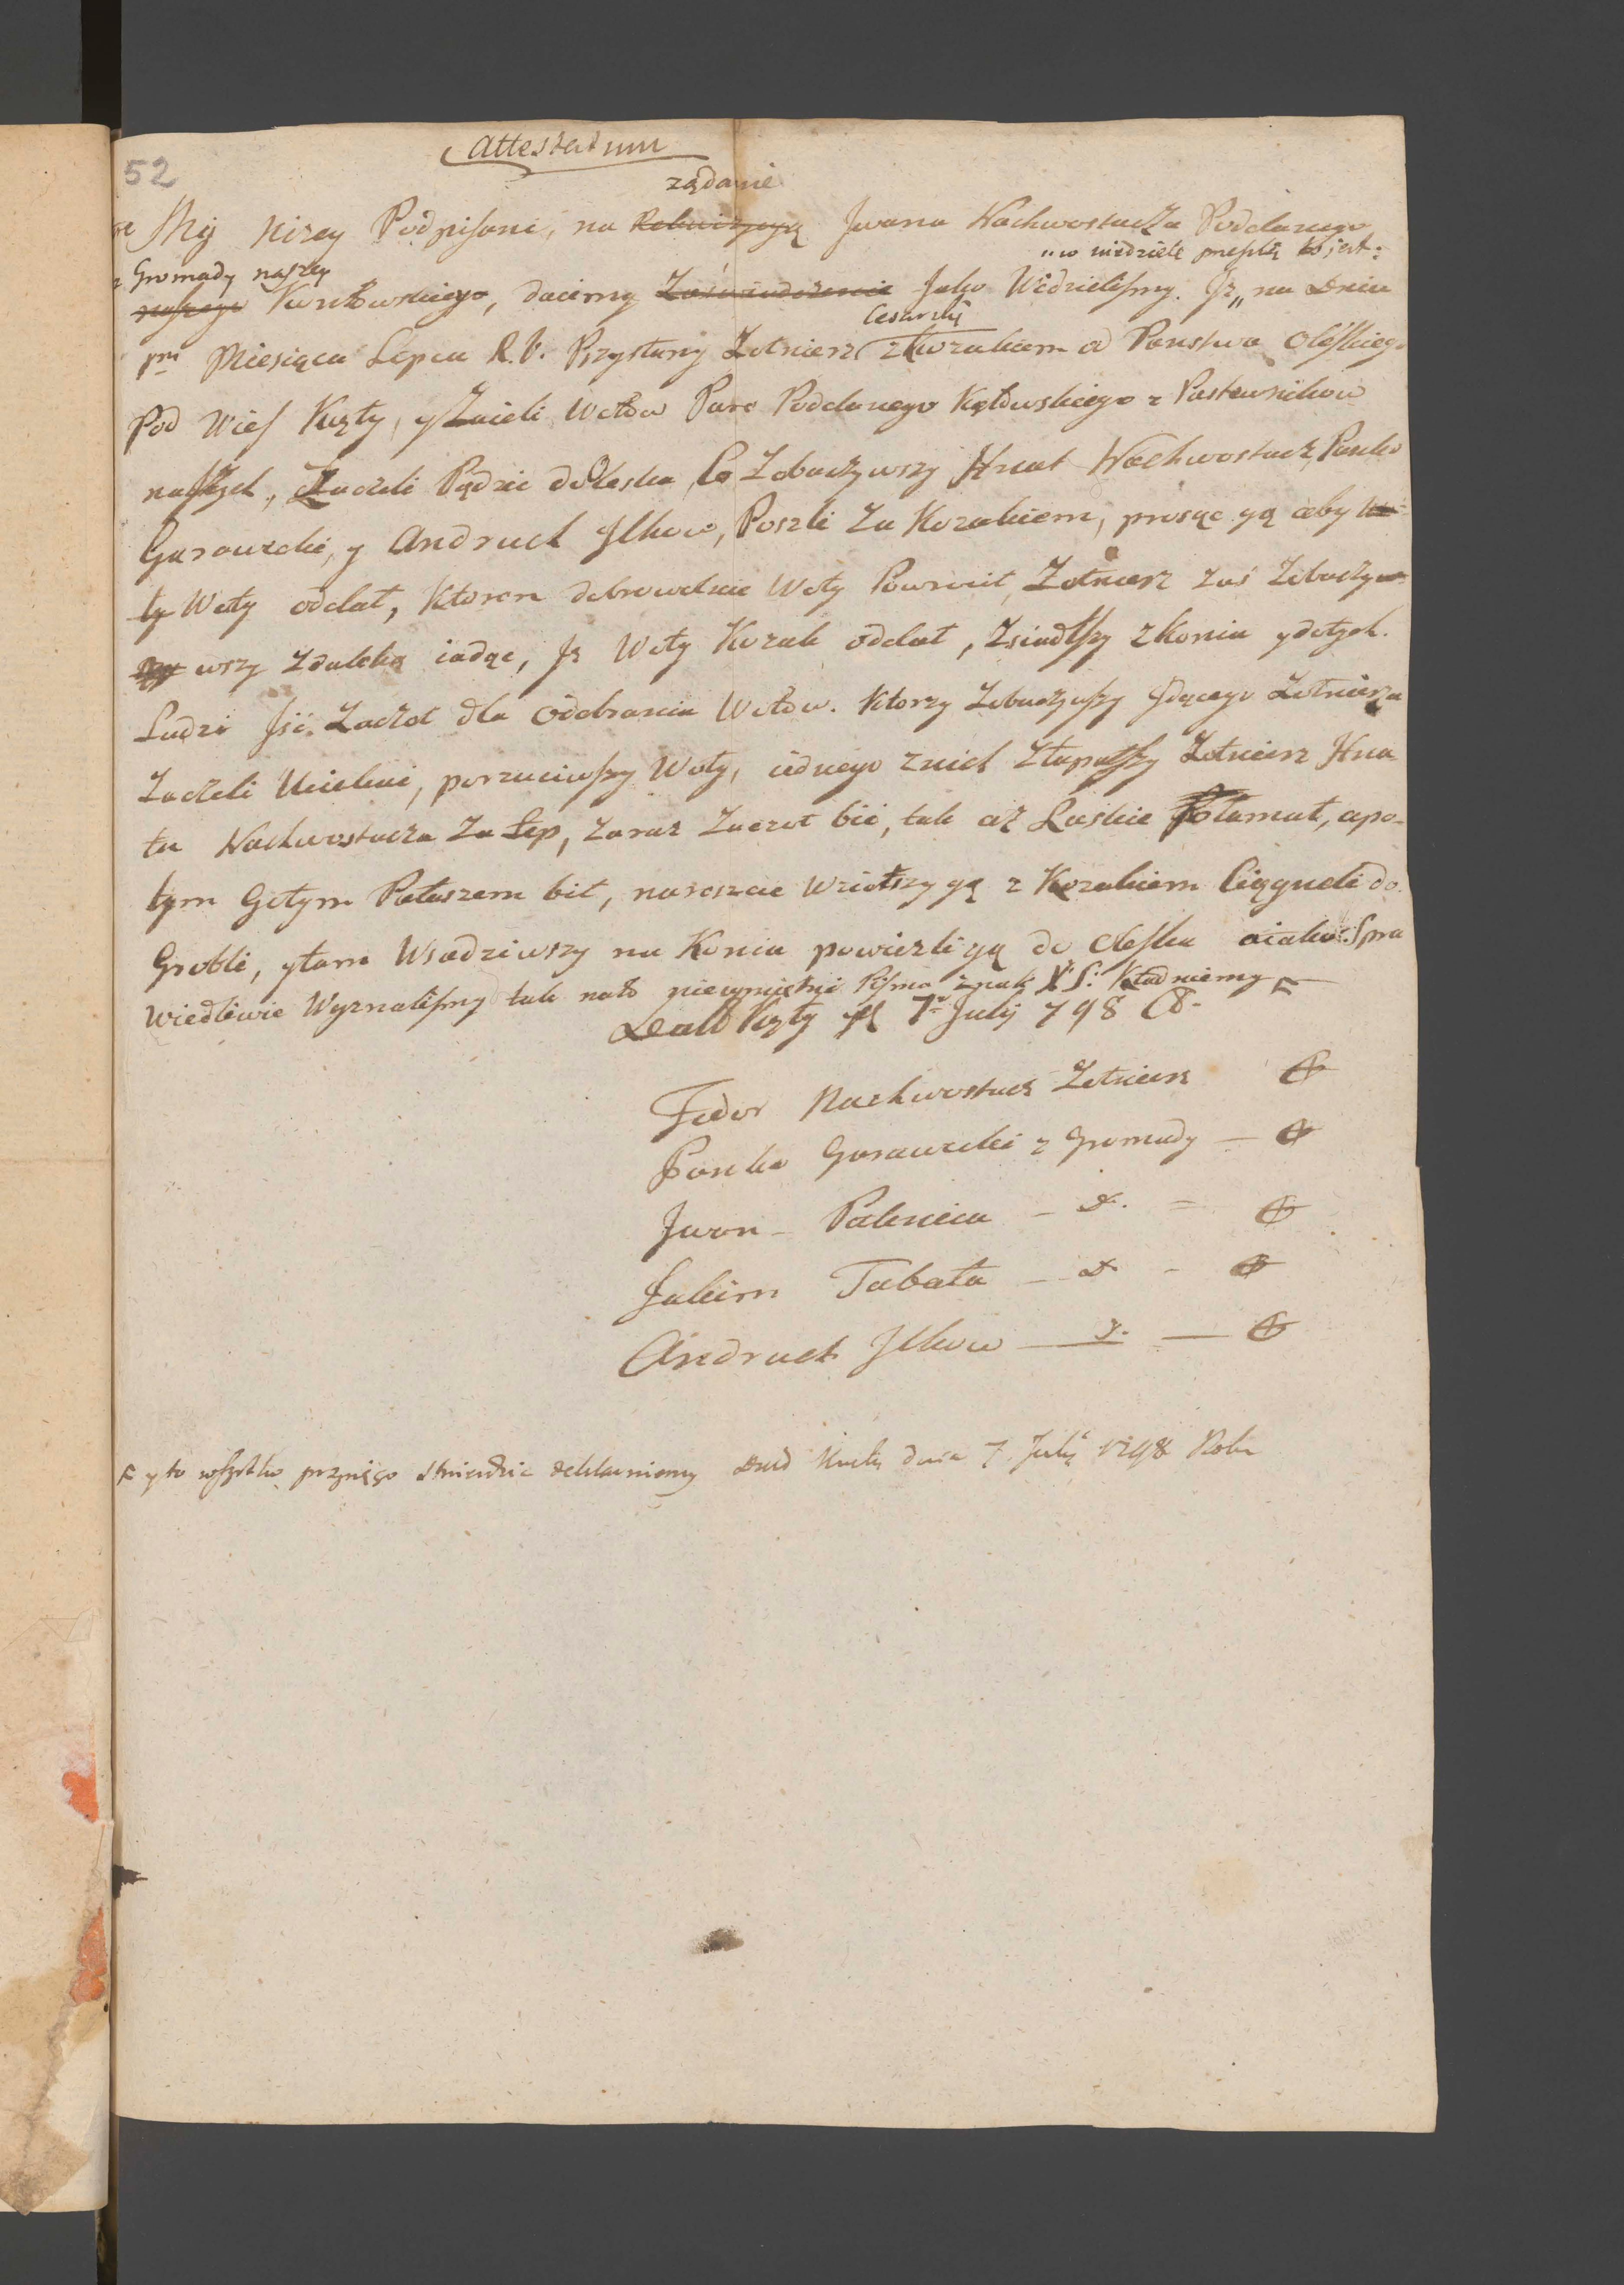 52
Attestatum
żądanie
My niżey Podpisani, na Rekwizycyą Jwana Nachwostacza Poddanego
z Gromady naszey „w niedziele przeszłą to jest:
naszego Kontowskiego, daiemy Zaświadczenie Jako Widzieliśmy. Jż „ na Dniu
Cesarski
1mi Miesiąca Lipca R. B. Przysłany Żołnierz z Kozakiem od Państwa Oleskiego
Pod Wieś Kąty, y Zaieli Wołów Pare Poddanego Kątowskiego z Pastewników
naszych, Zaczeli Pędzić do Oleska, Co Zobaczywszy Hnat Nachwostacz, Panko
Gurawecki, y Andruch Jlkow, Poszli Za Kozakiem, prosząc gą aby
ty Woły oddał, Ktoren dobrowolnie Woły Powrócił, Żołnierz zaś Zobaczy
wszy Zdaleką iadąc, Jż Woły Kozak oddał, Zsiadłszy z konia y do tych
Ludzi Jść Zaczoł dla Odebrania Wołów. Ktorzy Zobaczywszy Jdącego Żołnierza
Zaczeli Uciekać, porzuciwszy Woły, iednego z nich Złapałszy Żołnierz Hna
ta Nachwostacza Za Łep, Zaraz Zaczoł bić, tak aż Laskie Połamał, a po-
tym Gołym Pałaszem bił, nareszcie Wziołszy gą z Kozakiem Ciągneli do
Grobli, y tam Wsadziwszy na Konia powieźli gą do Oleska a iako Spra
wiedliwie Wyznaliśmy tak na to nieumiętni Pisma Znak Kś: Kładniemy
Datt Kąty d 7o July 798 
Fedor Nachwostacz Żołnierz
Panko Gurawecki z Gromady
Jwan Palenica – d. –
Jakim Tabała – d –
Andruch Jlkow – d. –
y to wszystko przysięgo stwierdzić deklarujemy Datt Kąty dnia 7 July 1798 Roku